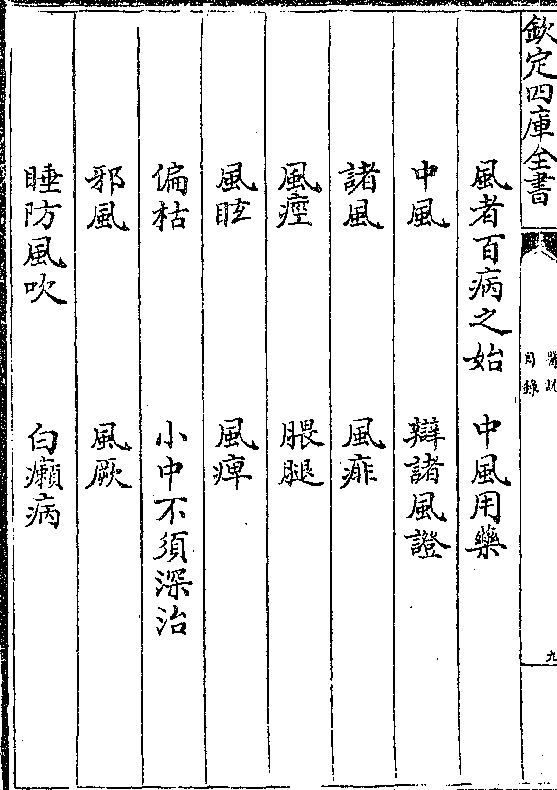 欽定四庫全書
醫說
目錄
九
風者百病之始 中風用藥
中風 辯諸風證
諸風 風痱
風痙 腲腿
風眩 風痺
偏枯 小中不須深治
邪風 風厥
睡防風吹 白癩病